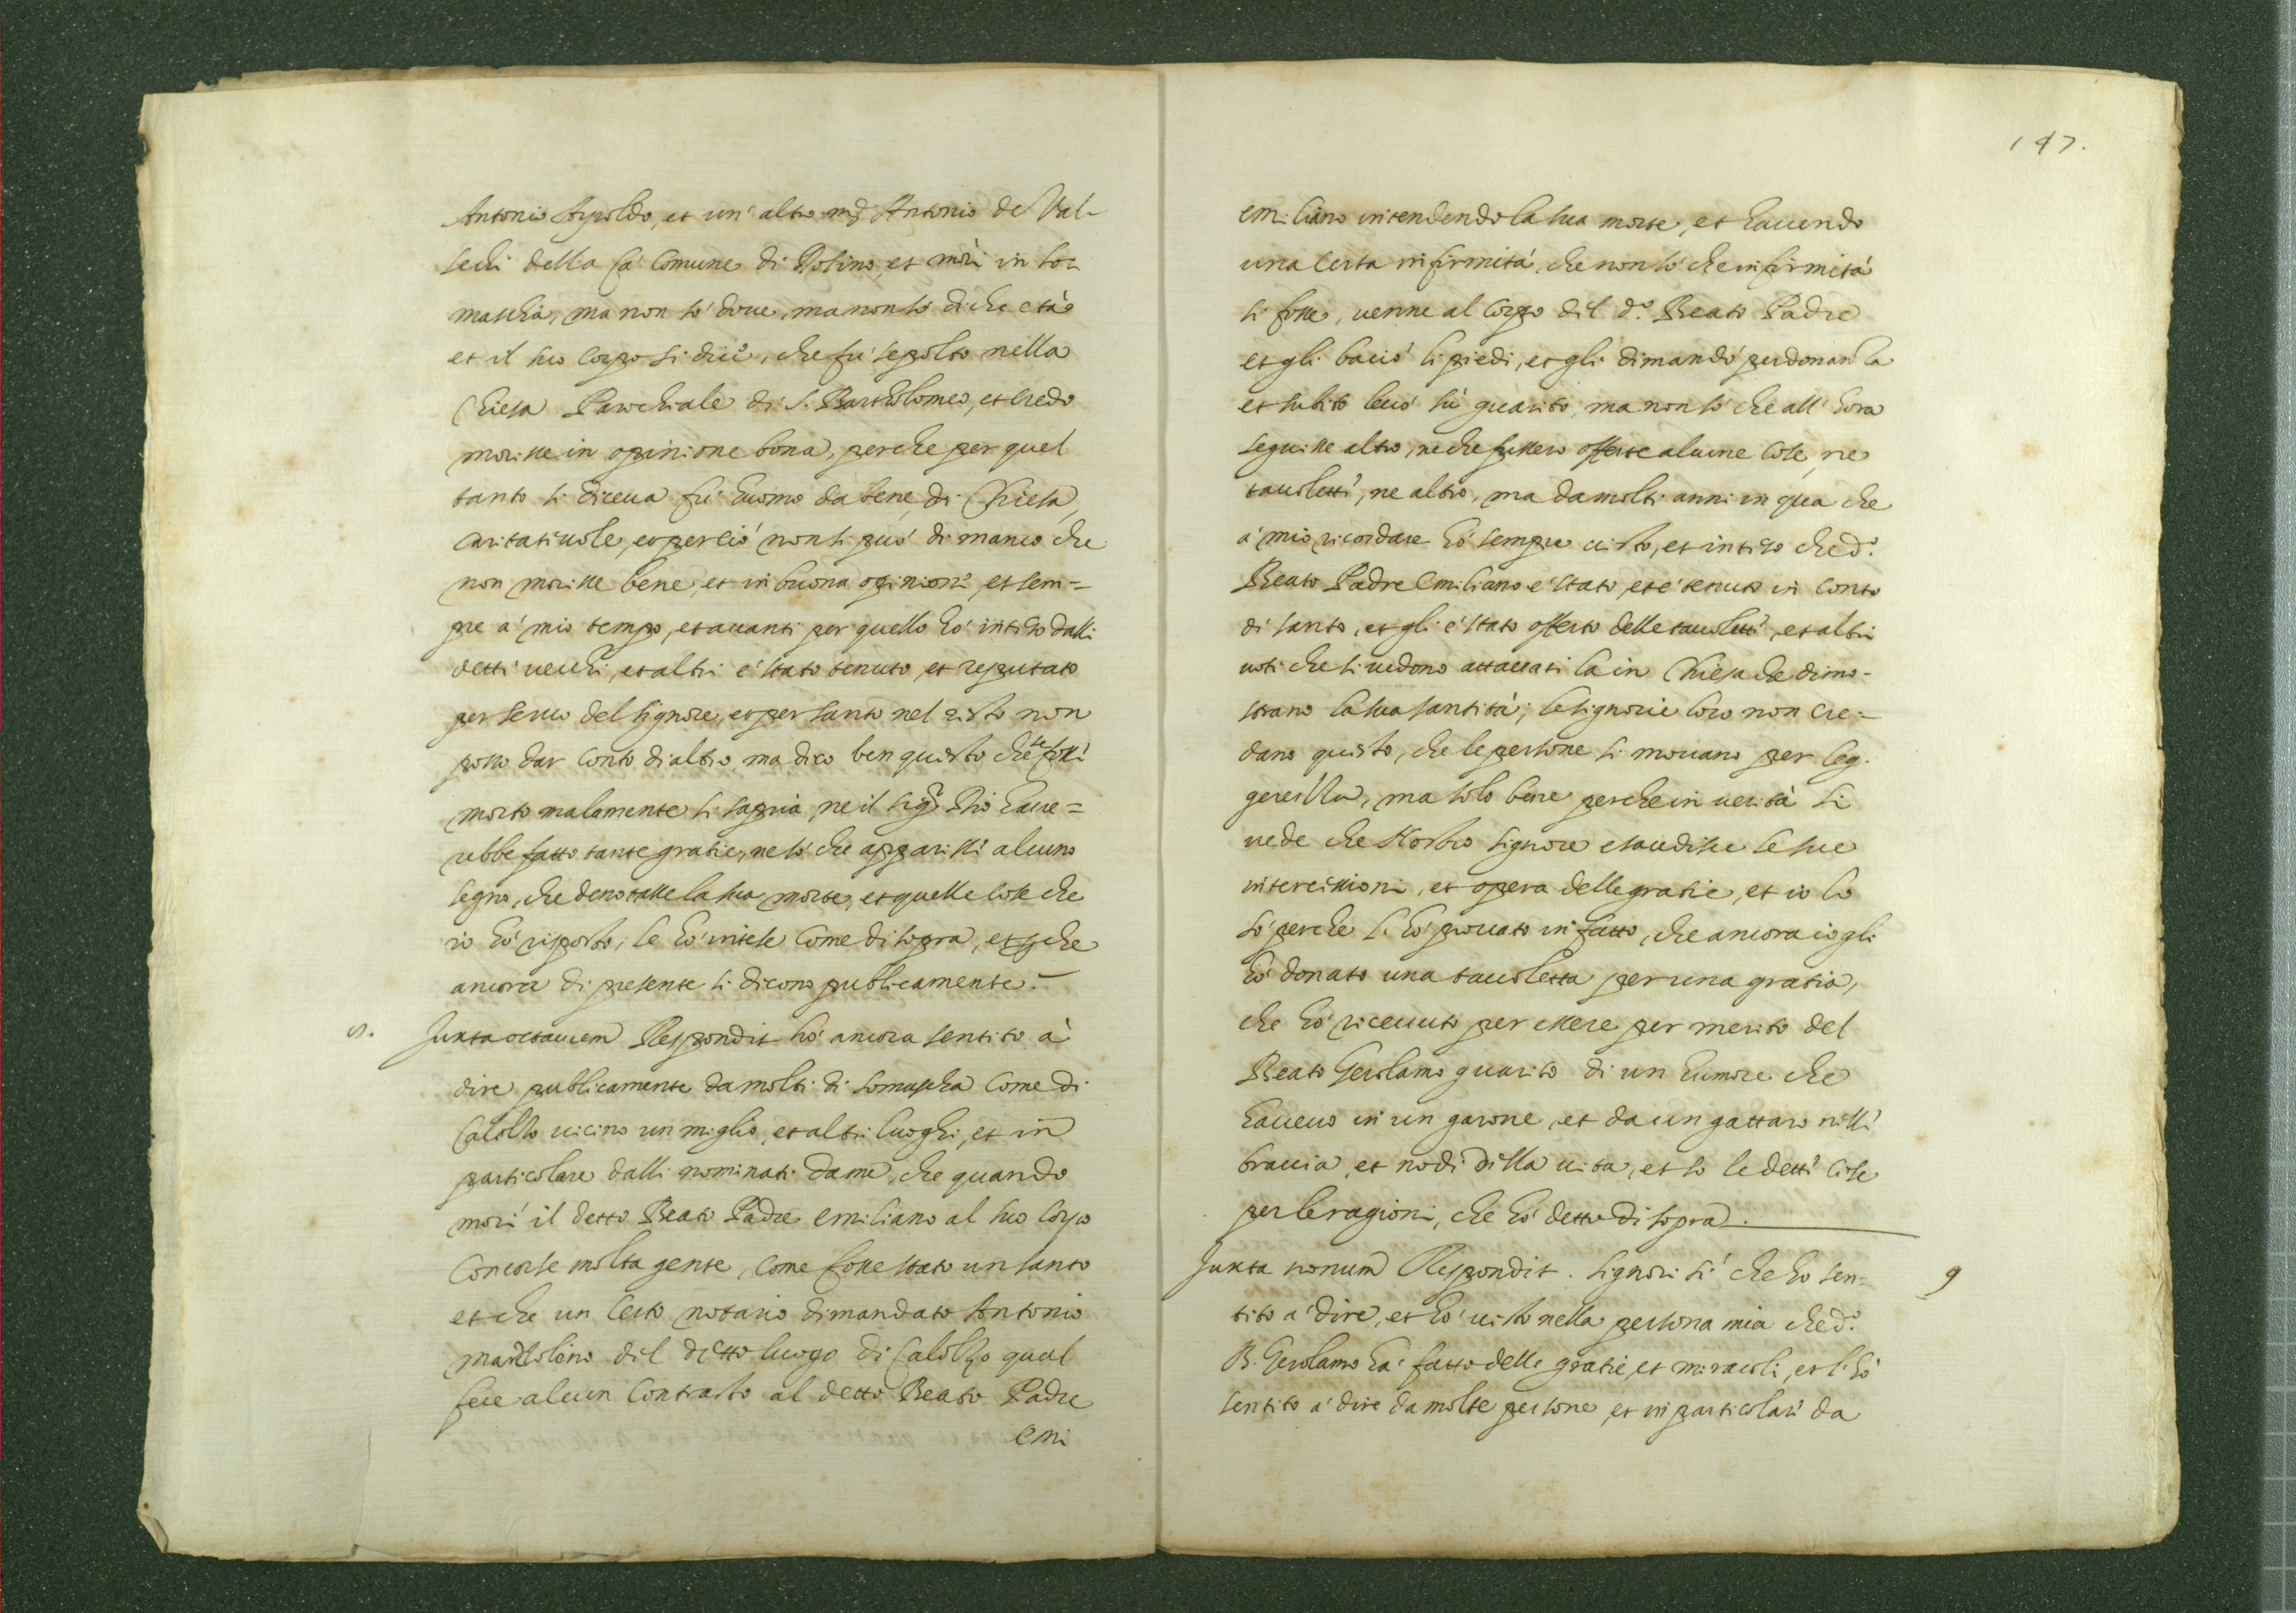 Antonio Airoldo, et un' altro m.ʳ Antonio de Val-
sechi della Cà Comune di Rosino, et morì in So=
mascha, ma non sò doue, ma non sò di che età
et il suo Corpo si dice, che fù sepolto nella
Chiesa Parochiale di S. Bartholomeo, et credo
morisse in opinione bona, perche per quel
tanto si diceua fù huomo da bene, di Chiesa,
caritatiuole, et perciò non si può di manco che
non morisse bene, et in buona opinione, et sem=
pre a' mio tempo, et auanti per quello hò inteso dalli
detti vecchi, et altri è stato tenuto et reputato
per seruo del Signore, et per santo nel resto non
posso dar conto di altro, ma dico ben questo che se fosse
morto malamente si sapria, ne il Sig.ʳ Dio haue=
rebbe fatto tante gratie, ne sò che apparisse alcuno
segno, che denotasse la sua morte, et quelle cose che
io hò risposto, le hò intese come di sopra, et che
ancora di presente si dicono publicamente.—
8. Juxta octauum Respondit hò ancora sentito à
dire publicamente da molti di Somascha come di
Calolzo vicino un miglio, et altri luoghi, et in
particolare dalli nominati da me, che quando
morì il detto Beato Padre Emiliano al suo Corpo
concorse molta gente, come fosse stato un santo
et che un certo notario dimandato Antonio
Mazoleno del detto luogo di Calolzo qual
fece alcun contrasto al detto Beato Padre
Emi
147.
Emiliano intendendo la sua morte, et hauendo
una certa infirmità, che non sò che infirmità
si fosse, venne al Corpo del d.º Beato Padre
et gli baciò li piedi, et gli dimandò perdonanza
et subito leuò sù guarito, ma non sò che all' hora
seguisse altro, ne che fussero offerte alcune cose, ne
tauolette, ne altro, ma da molti anni in qua che
à mio ricordare hò sempre visto, et inteso che d.º
Beato Padre Emiliano è stato, et è tenuto in conto
di santo, et gli è stato offerto delle tauolette, et altri
voti che si vedono attaccati là in Chiesa che dimo-
strano la sua santità; le Signorie loro non cre=
dano questo, che le persone si mouano per leg-
gerezza, ma solo bene perche in verità si
vede che Nostro Signore esaudisce le sue
intercessioni, et opera delle gratie, et io lo
sò perche l' hò prouato in fatto, che ancora io gli
hò donato una tauoletta per una gratia,
che hò riceuuto per essere per merito del
Beato Gerolamo guarito di un humore che
haueuo in un garone, et da un gattaro nelle
braccia, et nodi della vita, et sò le dette cose
per le ragioni, che hò detto di sopra.
Juxta nonum Respondit. Signori sì che ho sen= 9
tito a' dire, et hò visto nella persona mia che d.º
B. Gerolamo hà fatto delle gratie, et miracoli, et l' hò
sentito a' dire da molte persone et in particolare da